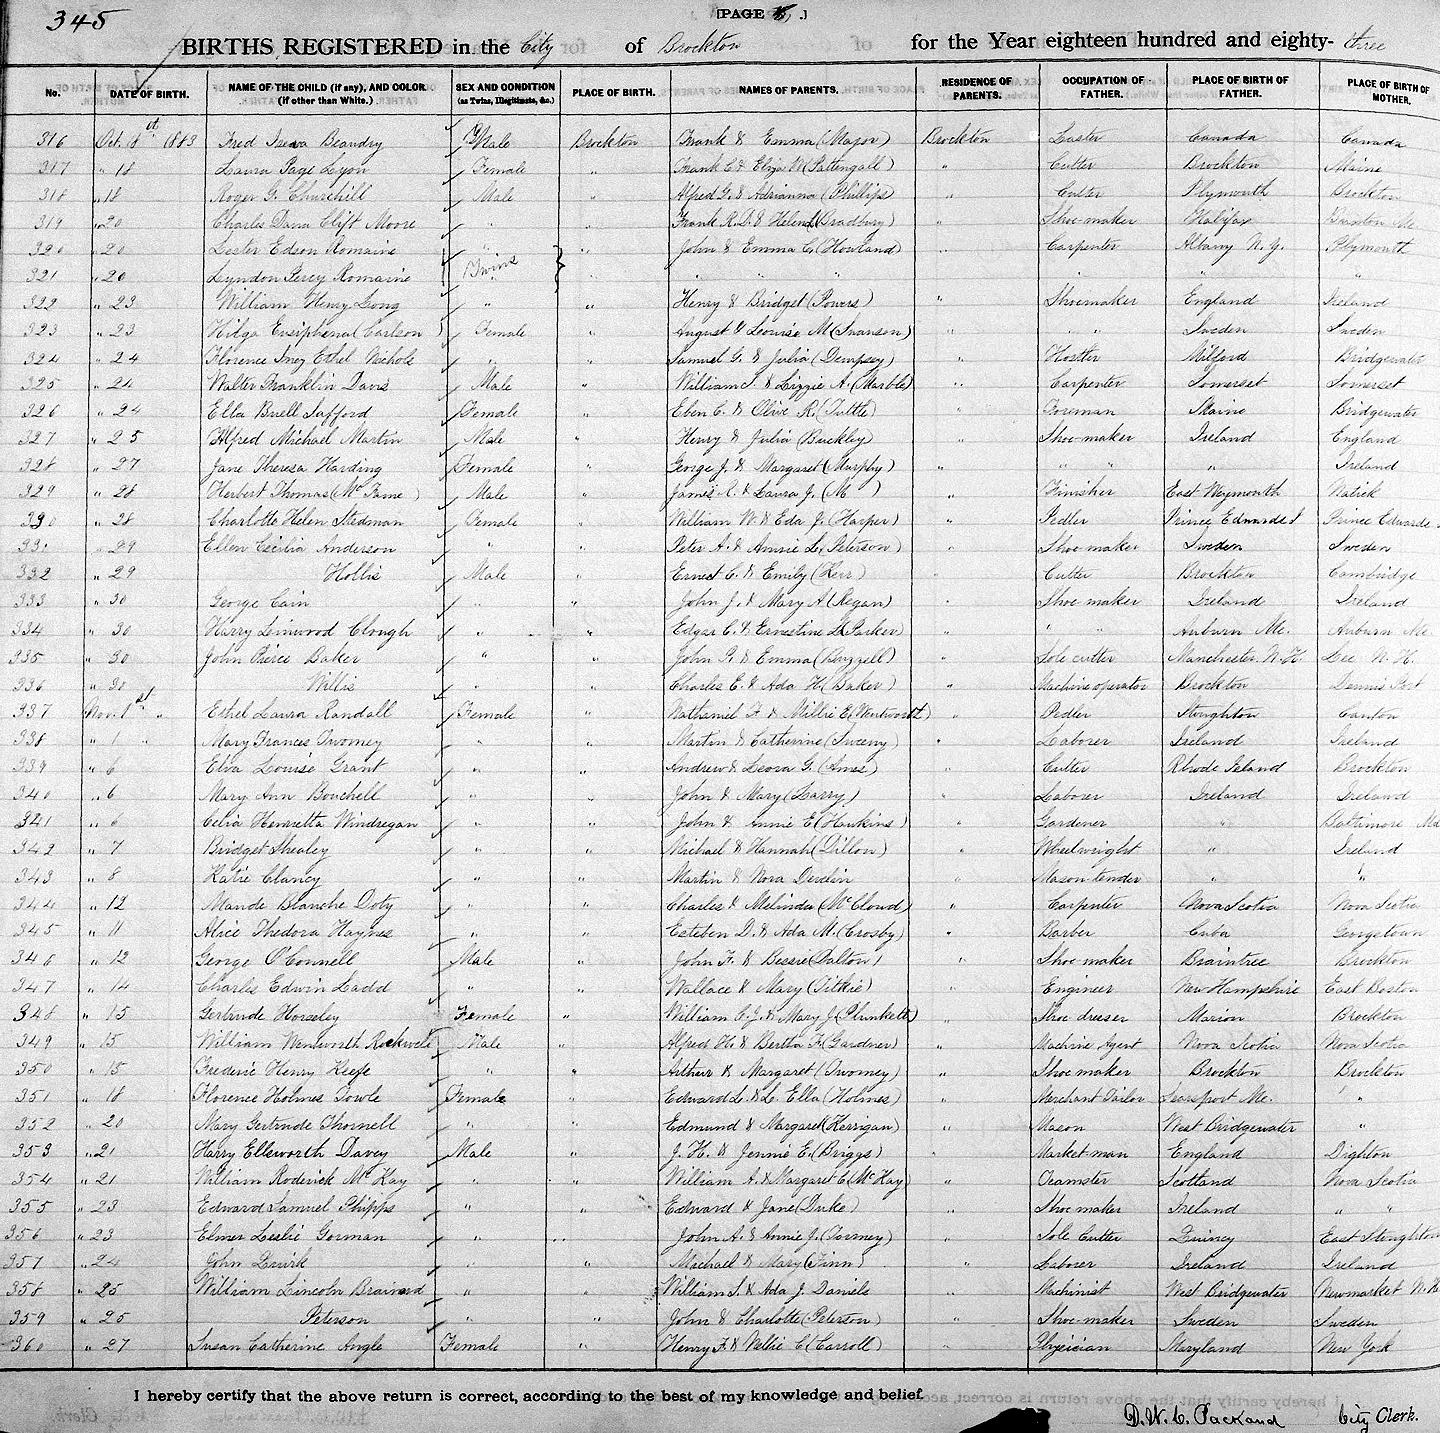 345
[PAGE .]
BIRTHS REGISTERED in the City of Brockton for the Year eighteen hundred and eighty-three
No. DATE OF BIRTH. NAME OF THE CHILD (if any), AND COLOR. (if other than White.) SEX AND CONDITION (as Twins, Illegitimate, &c.) PLACE OF BIRTH. NAMES OF PARENTS. RESIDENCE OF PARENTS. OCCUPATION OF FATHER. PLACE OF BIRTH OF FATHER. PLACE OF BIRTH OF MOTHER.
316 Oct. 1883 Fred Beaudry Male Brockton Frank & Emma (Major) Brockton Laster Canada Canada
317 " 18 Laura Page Lyon Female " Frank C & Eliza N (Pattengall) " Cutter Brockton Maine
318 " 18 Roger G. Churchill Male " Alfred G. & Adrianna (Phillips " Cutter Plymouth Brockton
319 " 20 Charles Dana Clift Moore " " Frank R.D. & Helena (Bradbury) " Shoe-maker Halifax Me.
320 " 20 Lester Edson Romaine " Twins " John & Emma C. (Howland) " Carpenter Albany N.Y. Plymouth
321 " 20 Lyndon Percy Romaine " " " " " " " " "
322 " 23 William Henry Long " " Henry & Bridget (Powers) " Shoemaker England Ireland
323 " 23 Hilga (Carlson) Female " August & Louise M (Swanson) " " " Sweden Sweden
324 " 24 Florence Inez Ethel Nichols " " Samuel G. & Julia (Dempsey) " Hostler Milford Bridgewater
325 " 24 Walter Franklin Davis Male " William S. & Lizzie A. (Marble) " Carpenter Somerset Somerset
326 " 24 Ella Buell Safford Female " Eben C. & Olive R. (Tuttle) " Foreman Maine Bridgewater
327 " 25 Alfred Michael Martin Male " Henry & Julia (Buckley) " Shoe-maker Ireland England
328 " 27 Jane Theresa Harding Female " George J. & Margaret (Murphy) " " " " Ireland
329 " 28 Herbert Thomas (Mc Fame ) Male " James R. & Laura J. (M ) " Finisher East Weymouth Natick
330 " 28 Charlotte Helen Stedman Female " William W. & Eda J. (Harper) " Pedler Prince Edwards I Prince Edwards
331 " 29 Ellen Cecilia Anderson " " Peter A. & Annie L. Peterson) " Shoe-maker Sweden Sweden
332 " 29 Hollis Male " Ernest C. & Emily (Kerr) " Cutter Brockton Cambridge
333 " 30 George Cain " " John J. & Mary A (Regan) " Shoe maker Ireland Ireland
334 " 30 Harry Linwood Clough " " Edgar C. & Ernestine L. (Parker) " " " Auburn Me. Auburn Me.
335 " 30 John Pierce Baker " " John P. & Emma (Buzzell) " Sole cutter Manchester N.H. Lee N.H.
336 " 30 Willis " Charles E. & Ada H. (Baker) " Machine operator Brockton Dennis Port
337 Nov. 1st " Ethel Laura Randall Female " Nathaniel F. & Millie E. (Wentworth) " Pedler Stoughton Canton
338 " 1 " Mary Frances Twomey " " Martin & Catherine (Sweeny) " Laborer Ireland Ireland
339 " 6 Elva Louise Grant " " Andrew & Leora G. (Ames) " Cutter Rhode Island Brockton
340 " 6 Mary Ann Bouchell " " John & Mary (Larry) " Laborer Ireland Ireland
341 " 6 Celia Henrietta Windregan " " John & Annie E (Hawkins) " Gardener " Baltimore Md
342 " 7 Bridget Shealey " " Michael & Hannah (Dillon) " Wheelwright " Ireland
343 " 8 Katie Clancy " " Martin & Nora Devlin " Mason-tender " "
344 " 12 Maude Blanche Doty " " Charles & Melinda (McCloud) " Carpenter Nova Scotia Nova Scotia
345 " 11 Alice Thedora Haynes " " Esteben D. & Ada M. (Crosby) " Barber Cuba Georgetown
346 " 12 George O'Connell Male " John F. & Bessie (Dalton) " Shoe maker Braintree Brockton
347 " 14 Charles Edwin Ladd " " Wallace & Mary (Titkie) " Engineer New Hampshire East Boston
348 " 15 Gertrude Horseley Female " William C.J. & Mary J. (Plunkett) " Shoe dresser Marion Brockton
349 " 15 William Wentworth Rockwell Male " Alfred H. & Bertha F. (Gardner) " Machine Agent Nova Scotia Nova Scotia
350 " 15 Frederic Henry Keefe " " Arthur & Margaret (Twomey) " Shoe maker Brockton Brockton
351 " 18 Florence Holmes Towle Female " Edward L. & L. Ella (Holmes) " Merchant Tailor Searsport Me. "
352 " 20 Mary Gertrude Thornell " " Edmund & Margaret (Kerrigan) " Mason West Bridgewater "
353 " 21 Harry Ellsworth Davey Male " J. H. & Jennie E. (Briggs) " Market-man England Dighton
354 " 21 William Roderick McKay " " William A. & Margaret C. (McKay) " Teamster Scotland Nova Scotia
355 " 23 Edward Samuel Phipps " " Edward & Jane (Duke) " Shoe maker Ireland " "
356 " 23 Elmer Leslie Gorman " " John A. & Annie J. (Tormey) " Sole Cutter Quincy East Stoughton
357 " 24 John Quirk " " Michael & Mary (Finn) " Laborer Ireland Ireland
358 " 25 William Lincoln Brainard " " William S. & Ada J. Daniels " Machinist West Bridgewater Newmarket N.H.
359 " 25 Peterson " " John & Charlotte (Peterson) " Shoe-maker Sweden Sweden
360 " 27 Susan Catherine Angle Female " Henry F. & Nellie C. (Carroll) " Physician Maryland New York
I hereby certify that the above return is correct, according to the best of my knowledge and belief.
D. W. C. Packard City Clerk.